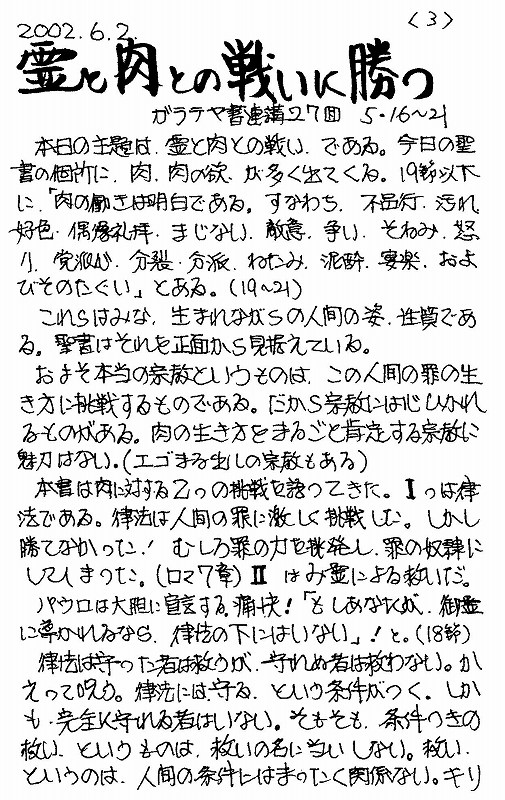 2002.6.2.
〈3〉
霊と肉との戦いに勝つ
ガラテヤ書連講27回 5・16〜21
本日の主題は、霊と肉との戦い、である。今日の聖
書の個所に、肉、肉の欲、が多く出てくる。19節以下
に、「肉の働きは明白である。すなわち、不品行、汚れ、
好色、偶像礼拝、まじない、敵意、争い、そねみ、怒
り、党派心、分裂、分派、ねたみ、泥酔、宴楽、およ
びそのたぐい」とある。(19〜21)
これらはみな、生まれながらの人間の姿、性質であ
る。聖書はそれを正面から見据えている。
およそ本当の宗教というものは、この人間の罪の生
き方に挑戦するものである。だから宗教には心ひかれ
るものがある。肉の生き方をまるごと肯定する宗教に
魅力はない。(エゴまる出しの宗教もある)
本書は肉に対する2つの挑戦を語ってきた。Ⅰつは律
法である。律法は人間の罪に激しく挑戦した。しかし
勝てなかった!むしろ罪の力を挑発し、罪の奴隷に
してしまった。(ロマ7章)Ⅱ はみ霊による救いだ。
パウロは大胆に宣言する。痛快!「もしあなたが、御霊
に導かれるなら、律法の下にはいない」!と。(18節)
律法は守った者は救うが、守れぬ者は救わない。か
えって呪う。律法には、守る、という条件がつく。しか
も、完全に守れる者はいない。そもそも、条件つきの
救い、というものは、救いの名に当いしない。救い、
というのは、人間の条件にはまったく関係ない。キリ